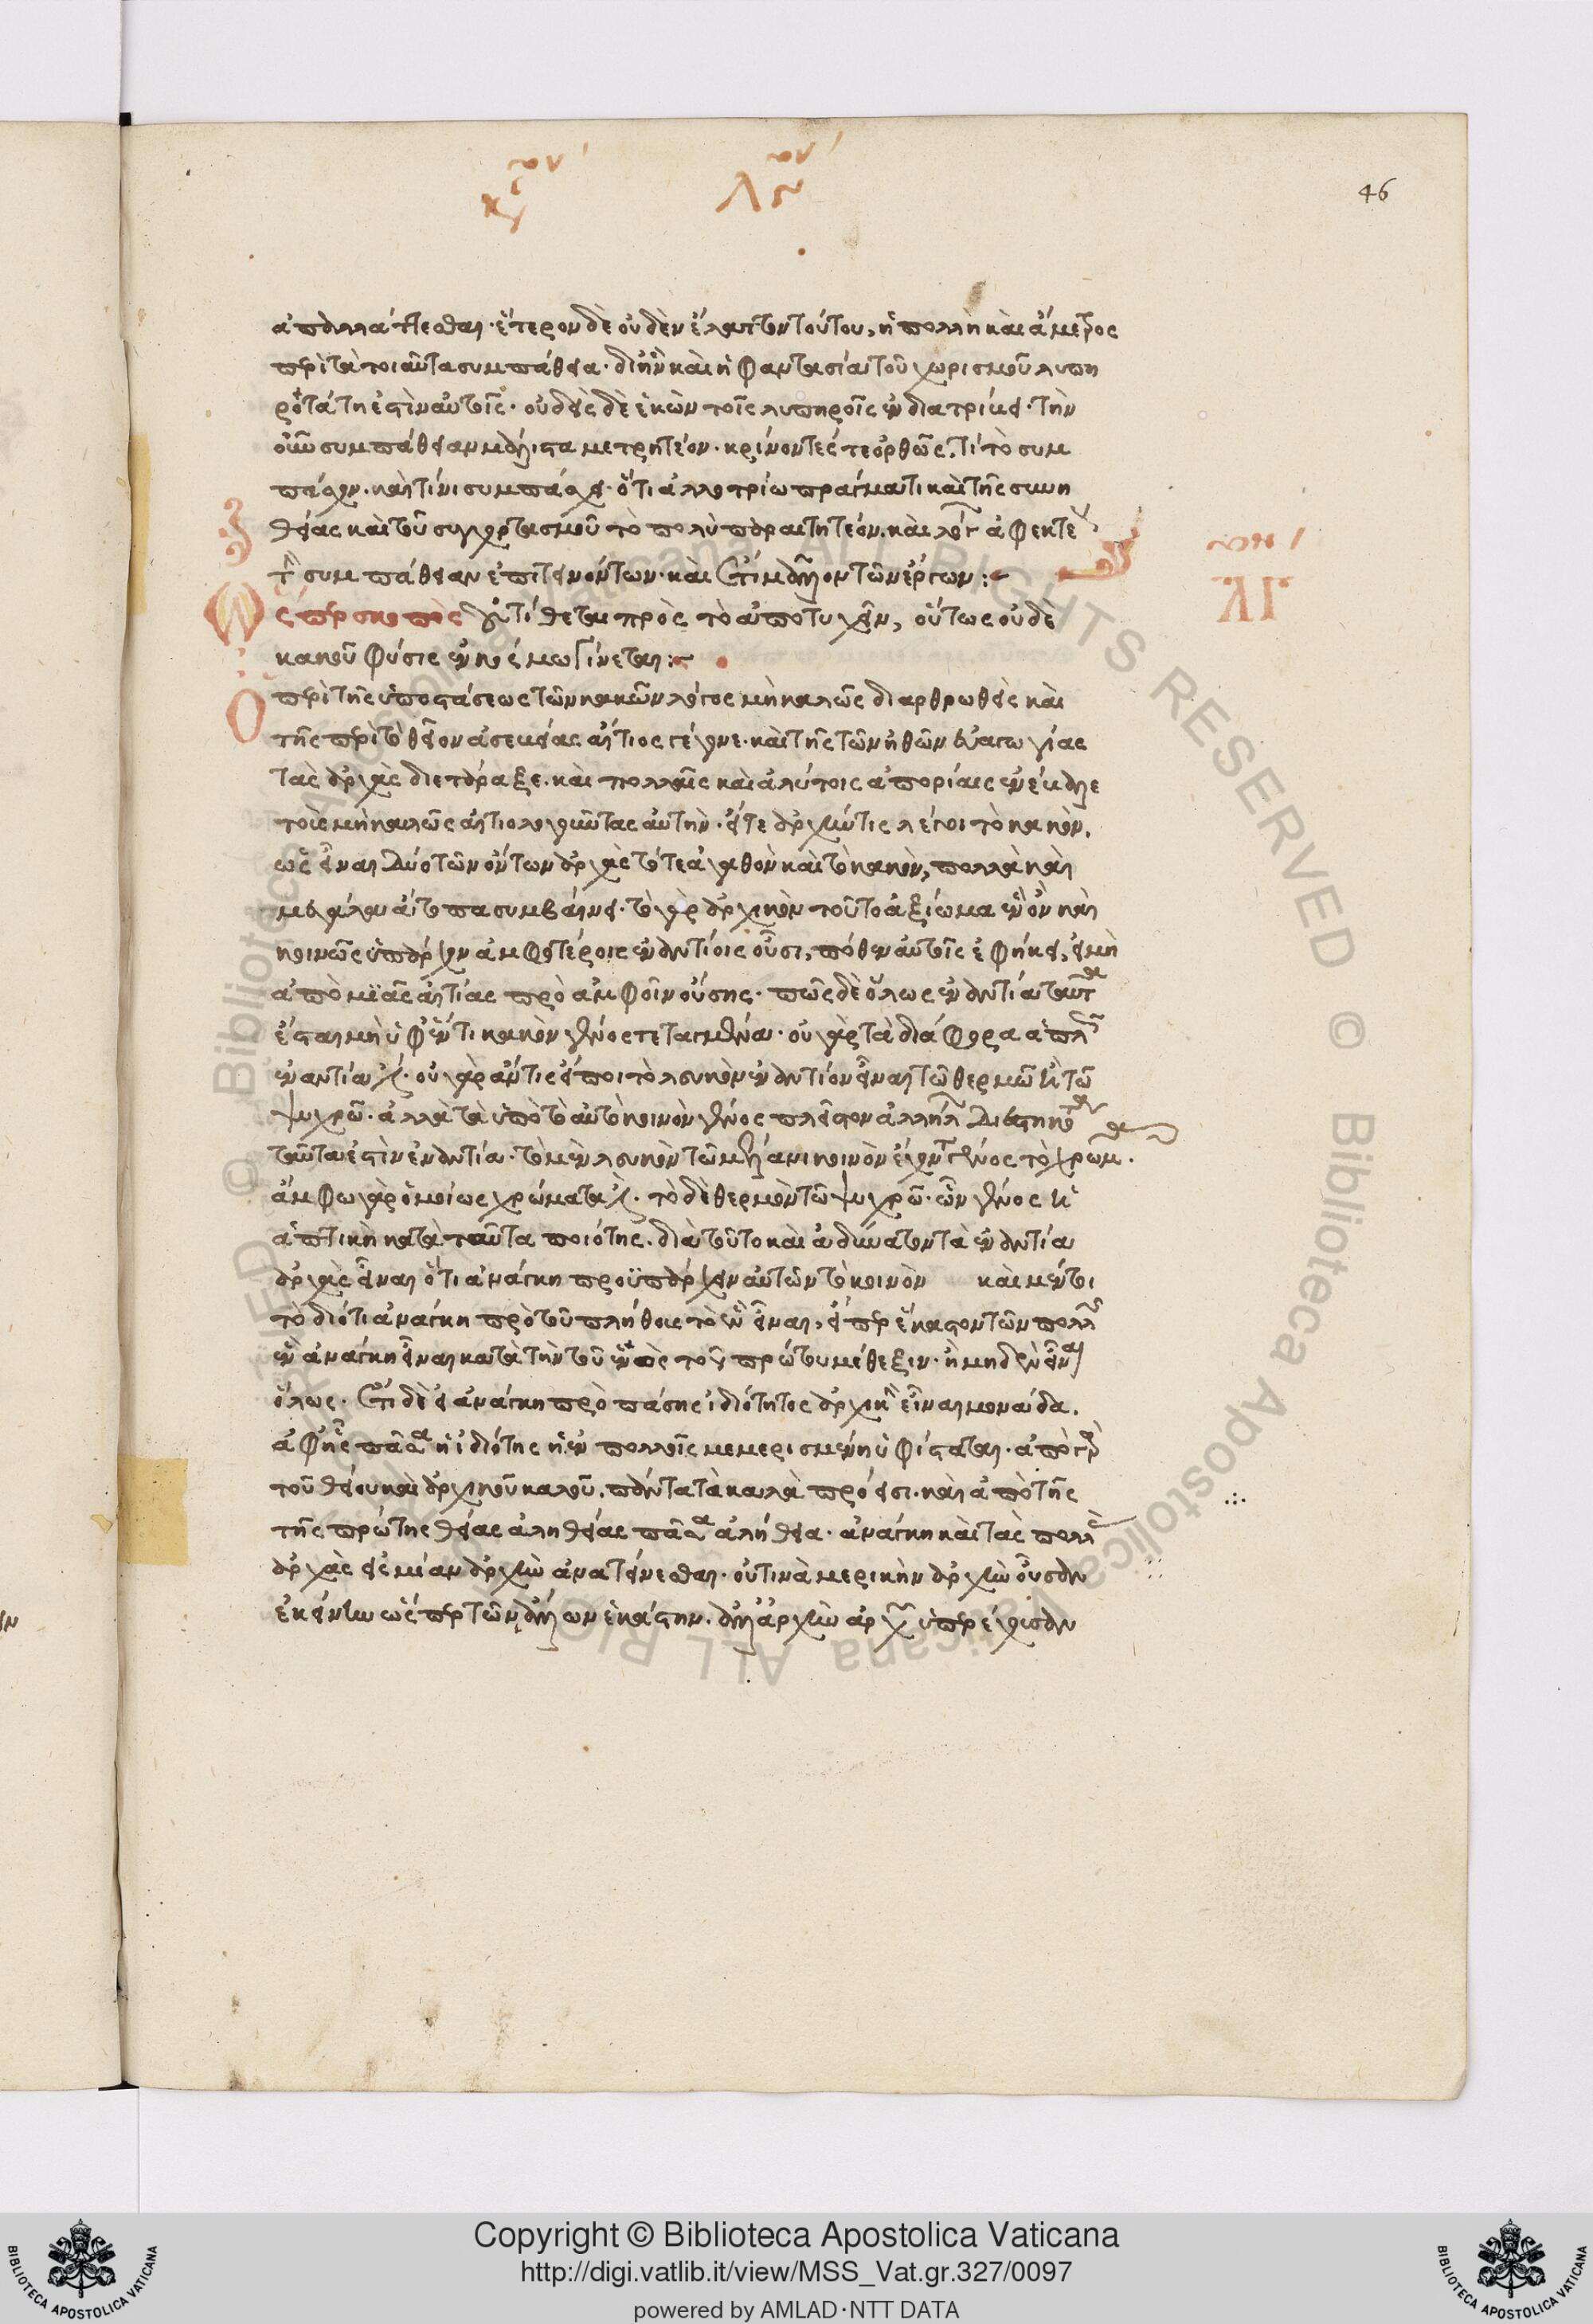 46
ἀπαλλάττεσθαι· ἕτερον δὲ οὐδὲν ἔλαττον τούτου, ἡ πολλὴ καὶ ἄμετρος
περὶ τὰ τοιαῦτα συμπάθεια· δι' ἣν καὶ ἡ φαντασία τοῦ χωρισμοῦ λυπη
ροτάτη ἐστὶν αὐτοῖς· οὐδεὶς δὲ ἑκὼν τοῖς λυπηροῖς ἐνδιατρίβει· τὴν
οὖν συμπάθειαν μάλιστα μετρητέον· κρίνοντές τε ὀρθῶς, τί τὸ συμ
πάσχον· καὶ τίνι συμπάσχει· ὅτι ἀλλοτρίω πράγματι καὶ τῆς συνη
θείας καὶ τοῦ συγχορτασμοῦ τὸ πολὺ παραιτητέον· καὶ λόγ ἀφεκτέ
τ συμπάθειαν ἐπιτεινόντων· καὶ ἔτι μᾶλλον τῶν ἔργων :
ὥσπερ σκοπὸς οὐ τίθεται πρὸς τὸ ἀποτυχεῖν, οὕτως οὐδὲ
κακοῦ φύσις ἐν κόσμω γίνεται :
Ὁ περὶ τῆς ὑποστάσεως τῶν κακῶν λόγος μὴ καλῶς διαρθρωθεὶς καὶ
τῆς περὶ τὸ θεῖον ἀσεβείας αἴτιος γέγονε· καὶ τῆς τῶν ἠθῶν εὐαγωγίας
τὰς ἀρχὰς διετάραξε· καὶ πολλαῖς καὶ ἀλύτοις ἀπορίαις ἐνέβαλε
τοὺς μὴ καλῶς αἰτιολογοῦντας αὐτήν· εἴτε ἀρχήν τις λέγοι τὸ κακόν,
ὡς εἶναι δύο τῶν ὄντων ἀρχὰς τό τε ἀγαθὸν καὶ τὸ κακόν, πολλὰ καὶ
μεγάλα ἄτοπα συμβαίνει· τὸ γὰρ ἀρχικὸν τοῦτο ἀξίωμα ἓν ὂν καὶ
κοινῶς ὑπάρχον ἀμφοτέροις ἐναντίοις οὖσι, πόθεν αὐτοῖς ἐφήκει, εἰ μὴ
ἀπὸ μιᾶς αἰτίας πρὸ ἀμφοῖν οὔσης· πῶς δὲ ὅλως ἐναντία ταῦτ
ἔσται μὴ ὑφ' ἕν τι κοινὸν γένος τεταγμένα· οὐ γὰρ τὰ διάφορα ἁπλ
ἐναντία· οὐ γὰρ ἄν τις εἴποι τὸ λευκὸν ἐναντίον εἶναι τῶ θερμῶ ἢ τῶ
ψυχρῶ· ἀλλὰ τὰ ὑπὸ τὸ αὐτὸ κοινὸν γένος πλεῖστον ἀλλήλ διεστηκότ
ταῦτα ἐστὶν ἐναντία· τὸ μὲν λευκὸν τῶ μέλανι κοινὸν ἔχοντ γένος τὸ χρῶμ.
ἄμφω γὰρ ὁμοίως χρώματα· τὸ δὲ θερμὸν τῶ ψυχρῶ· ὧν γένος ἡ
ἁπτικὴ κατὰ ταῦτα ποιότης· διὰ τοῦτο καὶ ἀδύνατον τὰ ἐναντία
ἀρχὰς εἶναι ὅτι ἀνάγκη προϋπάρχειν αὐτῶν τὸ κοινὸν καὶ μέντοι
τὸ διότι ἀνάγκη πρὸ τοῦ πλήθους τὸ ἓν εἶναι, εἴπερ ἕκαστον τῶν πολλ
ἓν ἀνάγκη εἶναι κατὰ τὴν τοῦ ἑνὸς τοῦ πρώτου μέθεξιν· ἢ μηδὲν εἶναι
ὅλως· ἔτι δὲ εἰ ἀνάγκη πρὸ πάσης ἰδιότητος ἀρχικὴν εἶναι μονάδα,
ἀφ' ἧς πᾶσα ἡ ἰδιότης ἡ ἐν πολλοῖς μεμερισμένη ὑφίσταται· ἀπὸ γὰρ
τοῦ θείου καὶ ἀρχικοῦ καλοῦ, πάντα τὰ καλὰ πρόεισι· καὶ ἀπὸ τῆς
τῆς πρώτης θείας ἀληθείας πᾶσα ἀλήθεια· ἀνάγκη καὶ τὰς πολλὰς
ἀρχὰς εἰς μίαν ἀρχὴν ἀνατείνεσθαι· οὔ τινα μερικὴν ἀρχὴν οὖσαν
ἐκείνην ὥσπερ τῶν ἄλλων ἑκάστην· ἀλλ' ἀρχὴν ἀρχ ὑπερέχουσαν
© Biblioteca Apostolica Vaticana ALL RIGHTS RESERVED
Copyright © Biblioteca Apostolica Vaticana
http://digi.vatlib.it/view/MSS_Vat.gr.327/0097
powered by AMLAD·NTT DATA
BIBLIOTECA APOSTOLICA VATICANA
BIBLIOTECA APOSTOLICA VATICANA